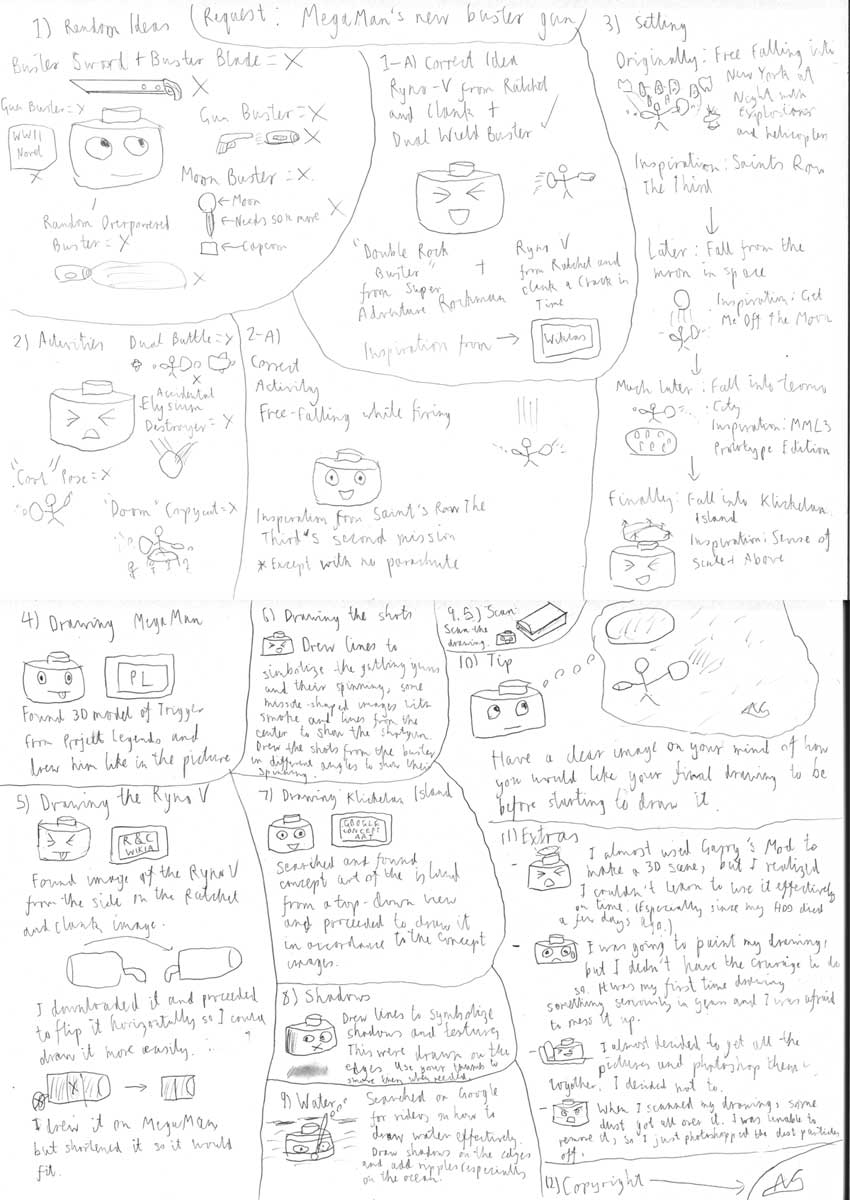 1) Random Ideas
(Request: MegaMan's new buster gun)
Buster Sword + Buster Blade = X
X
Gun Buster = X
WWII
Novel
X
Random Overpowered
Buster = X
X
Gun Buster = X
X
Moon Buster = X
← Moon
← Needs 50% more
X
← Capcom
1-A) Correct Idea
Ryno-V from Ratchet
and Clank +
Dual Wield Buster ✓
"Double Rock
Buster"
from Super
Adventure Rockman
+
Ryno V
from Ratchet and
Clank a Crack in
Time
Inspiration from →
Wikias
2) Activities
Dual Battle = X
X
Accidental
Elysium
Destroyer = X
"Cool" Pose = X
"Doom" Copycat = X
2-A)
Correct
Activity
Free-Falling while firing
Inspiration from Saint's Row The
Third's second mission
*Except with no parachute
3) Setting
Originally: Free Falling into
New York at
Night with
explosions
and helicopters
Inspiration: Saints Row
The Third
Later: Fall from the
moon in space
Inspiration: Get
Me Off the Moon
Much later: Fall into
City
Inspiration: MML3
Prototype Edition
Finally: Fall into Klickelan
Island
Inspiration: Sense of
Scale + Above
4) Drawing MegaMan
PL
Found 3D model of Trigger
from Project Legends and
drew him like in the picture
5) Drawing the Ryno V
R&C
WIKIA
Found image of the Ryno V
from the side on the Ratchet
and Clank image.
I downloaded it and proceeded
to flip it horizontally so I could
draw it more easily.
X
I drew it on MegaMan
but shortened it so it would
fit.
6) Drawing the shots
Drew lines to
simbolize the gatling guns
and their spinning, some
missile-shaped images with
smoke and lines from the
center to show the shotgun.
Drew the shots from the buster
in different angles to show their
spinning.
7) Drawing Klickelan Island
GOOGLE
CONCEPT
ART
Searched and found
concept art of the island
from a top-down view
and proceeded to draw it
in accordance to the concept
images.
8) Shadows
Drew lines to symbolize
shadows and texture.
This were drawn on the
edges. Use your thumb to
smove them when needed.
9) Water
Searched on Google
for videos on how to
draw water effectively.
Draw shadows on the edges
and add ripples (especially
on the ocean.
9.5) Scan
Scan the
drawing.
10) Tip
AG
Have a clear image on your mind of how
you would like your final drawing to be
before starting to draw it.
11) Extras
- I almost used Garry's Mod to
make a 3D scene, but I realized
I couldn't learn to use it effectively
on time. (Especially since my HDD died
a few days ago.)
- I was going to paint my drawing,
but I didn't have the courage to do
so. It was my first time drawing
something seriously in years and I was afraid
to mess it up.
- I almost decided to get all the
pictures and photoshop them
together. I decided not to.
- When I scanned my drawing, some
dust got all over it. I was unable to
remove it, so I just photoshopped the dust particles
off.
12) Copyright → AG